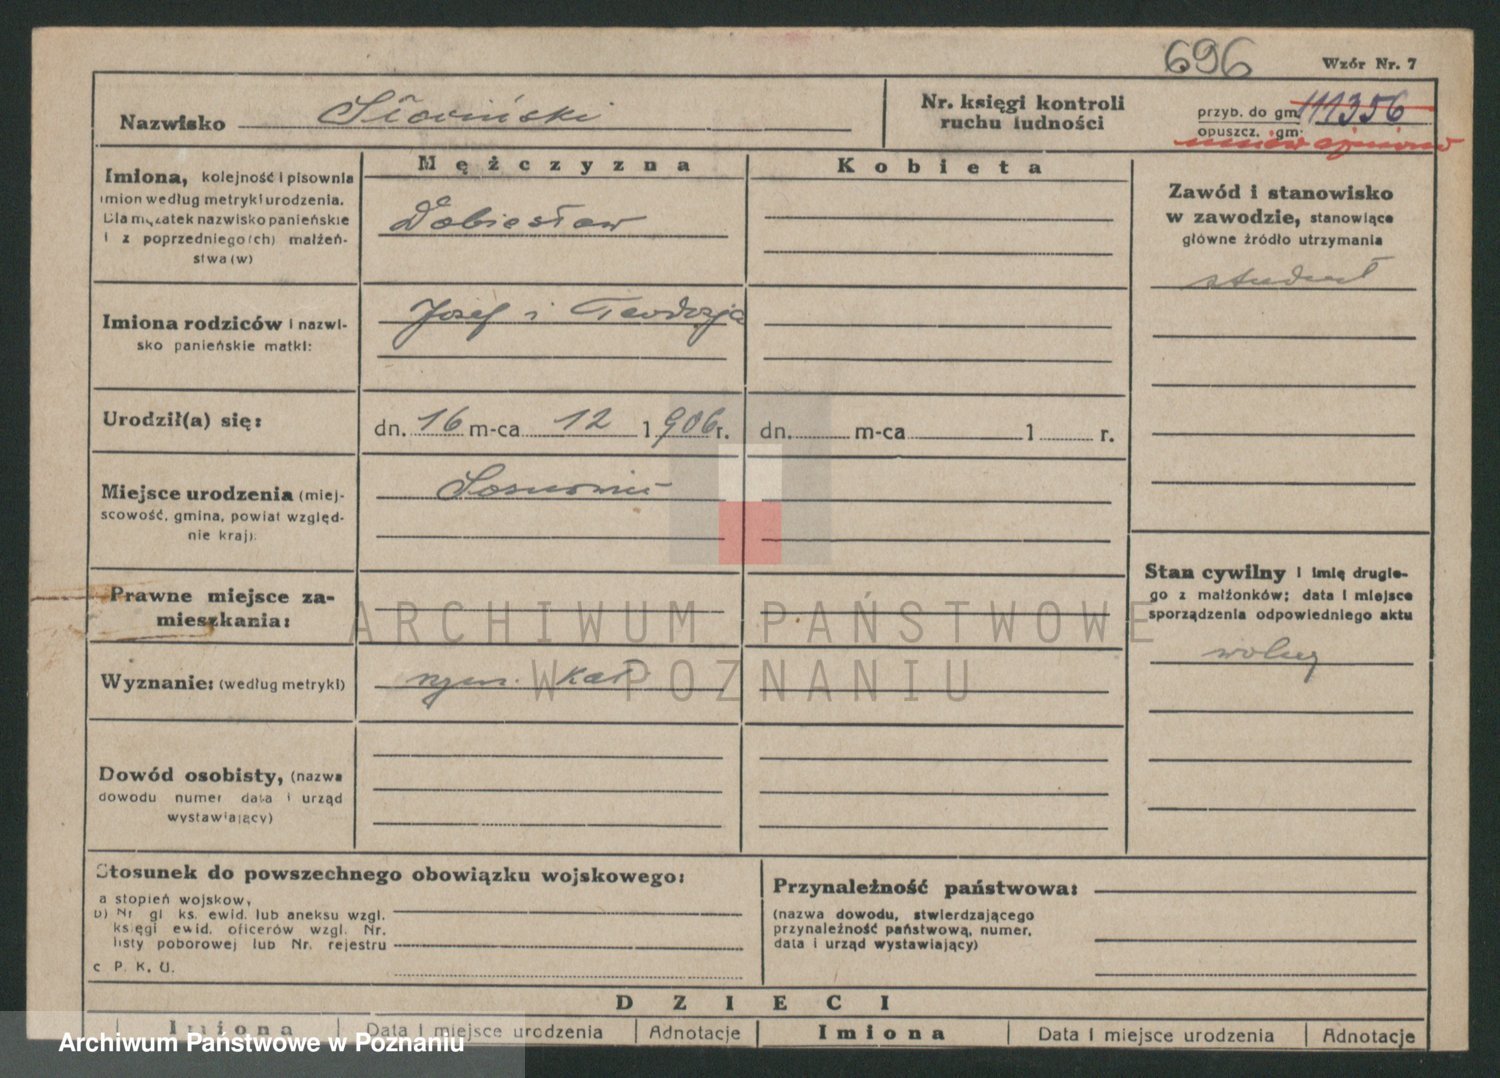 696
Wzór Nr. 7
Nazwisko Słowiński
Nr. księgi kontroli
ruchu ludności
przyb. do gm. 111356
opuszcz. gm.
Mężczyzna
Kobieta
Imiona, kolejność i pisownia
imion według metryki urodzenia.
Dla mężatek nazwisko panieńskie
i z poprzedniego(ch) małżeń-
stwa(w)
Dobiesław
Zawód i stanowisko
w zawodzie, stanowiące
główne źródło utrzymania
student
Imiona rodziców i nazwi-
sko panieńskie matki:
Józef i Teodozja
Urodził(a) się:
dn. 16 m-ca 12 1906 r.
dn. m-ca 1 r.
Miejsce urodzenia (miej-
scowość, gmina, powiat względ-
nie kraj):
Prawne miejsce za-
mieszkania:
Stan cywilny i imię drugie-
go z małżonków; data i miejsce
sporządzenia odpowiedniego aktu
wolny
Wyznanie: (według metryki)
rzym. kat
Dowód osobisty, (nazwa
dowodu numer data i urząd
wystawiający)
Stosunek do powszechnego obowiązku wojskowego:
a stopień wojskow,
b) Nr gl ks. ewid. lub aneksu wzgl.
księgi ewid. oficerów wzgl. Nr.
listy poborowej lub Nr. rejestru
c P. K. U.
Przynależność państwowa:
(nazwa dowodu, stwierdzającego
przynależność państwową, numer,
data i urząd wystawiający)
DZIECI
Imiona
Data i miejsce urodzenia
Adnotacje
Imiona
Data i miejsce urodzenia
Adnotacje
ARCHIWUM PAŃSTWOWE
W POZNANIU
Archiwum Państwowe w Poznaniu